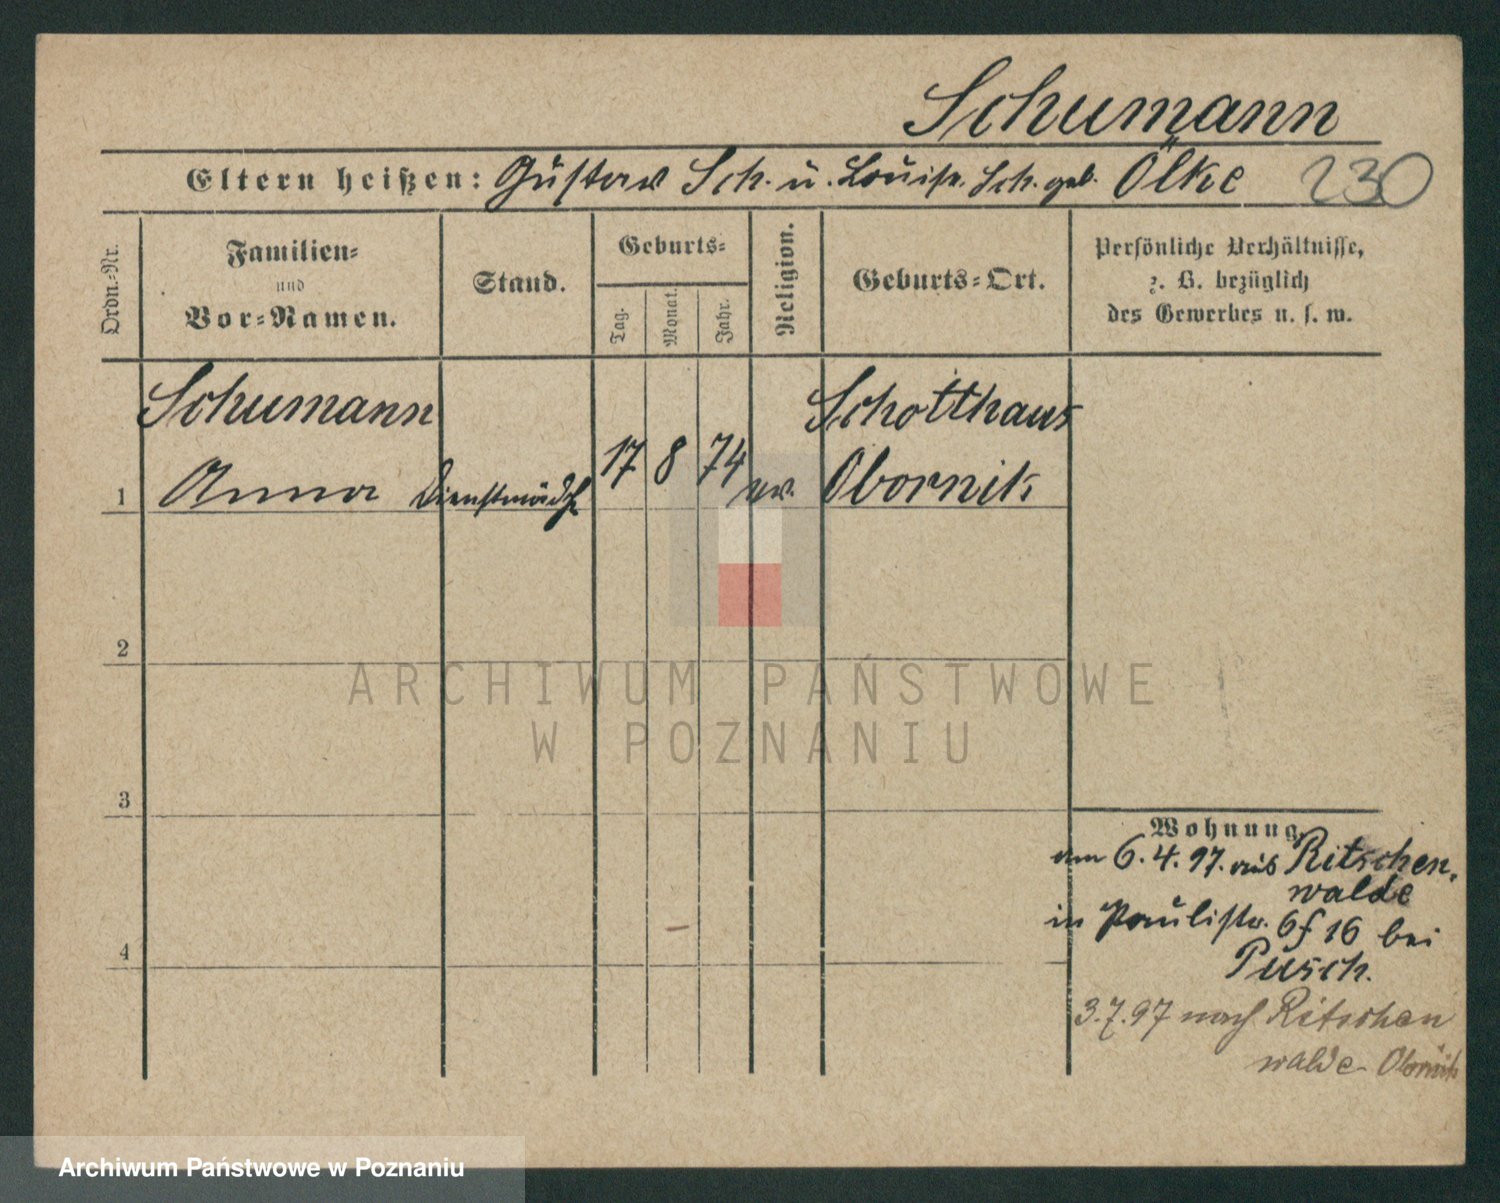 Schumann
Eltern heißen: Gustav Sch. u. Louise Sch. geb. Ölke 230
Ordn.=Nr.
Familien=
und
Vor=Namen.
Stand.
Geburts=
Tag.
Monat.
Jahr.
Religion.
Geburts=Ort.
Persönliche Verhältnisse,
z. B. bezüglich
des Gewerbes u. s. w.
Schumann Schotthaus
1 Anna Dienstmädch 17 8 74 ev. Obornik
2
3
4
Wohnung.
am 6.4.97. aus Ritschen-
walde
in Paulistr. 6f 16 bei
Pusch.
3.7.97 nach Ritschen
walde - Obornik
ARCHIWUM PAŃSTWOWE
W POZNANIU
Archiwum Państwowe w Poznaniu